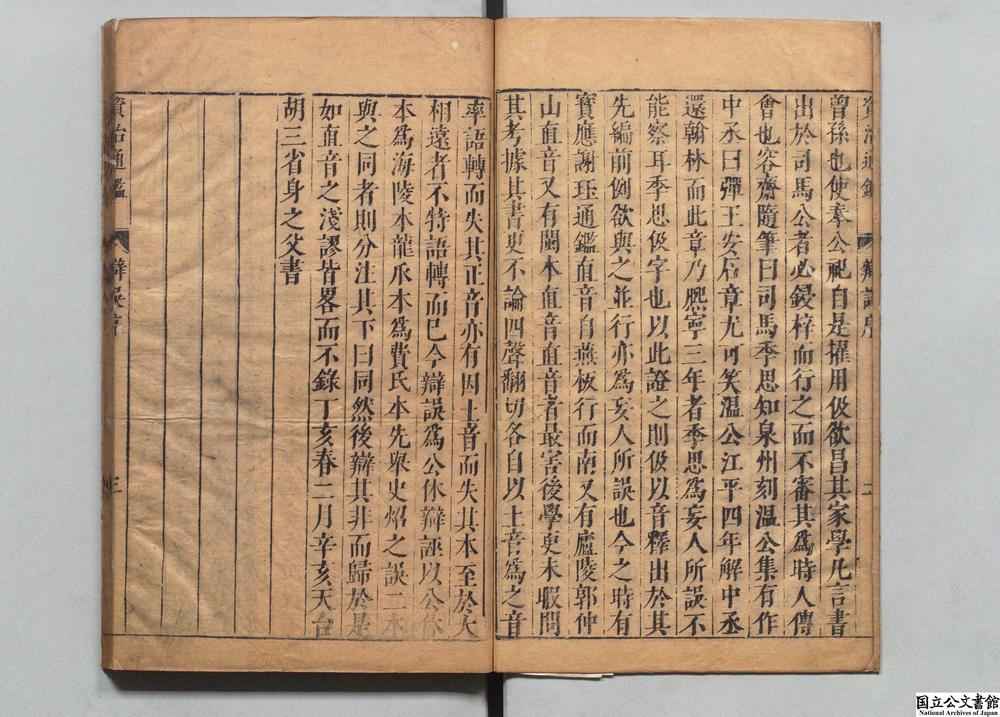 曾孫也使奉公祀自是擢用伋欲昌其家學凡言書
出於司馬公者必鋟梓而行之而不審其為時人傳
會也容齋隨筆曰司馬季思知泉州刻溫公集有作
中丞日彈王安石章尤可笑溫公江平四年解中丞
還翰林而此章乃熈寧三年者季思為妄人所誤不
能察耳季思伋字也以此證之則伋以音釋出於其
先編前例欲與之並行亦為妄人所誤也今之時有
寳應謝珏通鑑直音自燕板行而南又有廬陵郭仲
山直音又有閩本直音直音者最害後學更未暇問
其考據其書更不論四聲翻切各自以土音為之音
率語轉而失其正音亦有因土音而失其本至於大
相遠者不特語轉而已今辯誤為公休辯誣以公休
本為海陵本龍爪本為費氏本先舉史炤之誤二本
與之同者則分注其下曰同然後辯其非而歸於是
如直音之淺謬皆畧而不錄丁亥春二月辛亥天台
胡三省身之父書
資治通鑑
辯誤序
三
資治通鑑
辯誤序
二
国立公文書館
National Archives of Japan